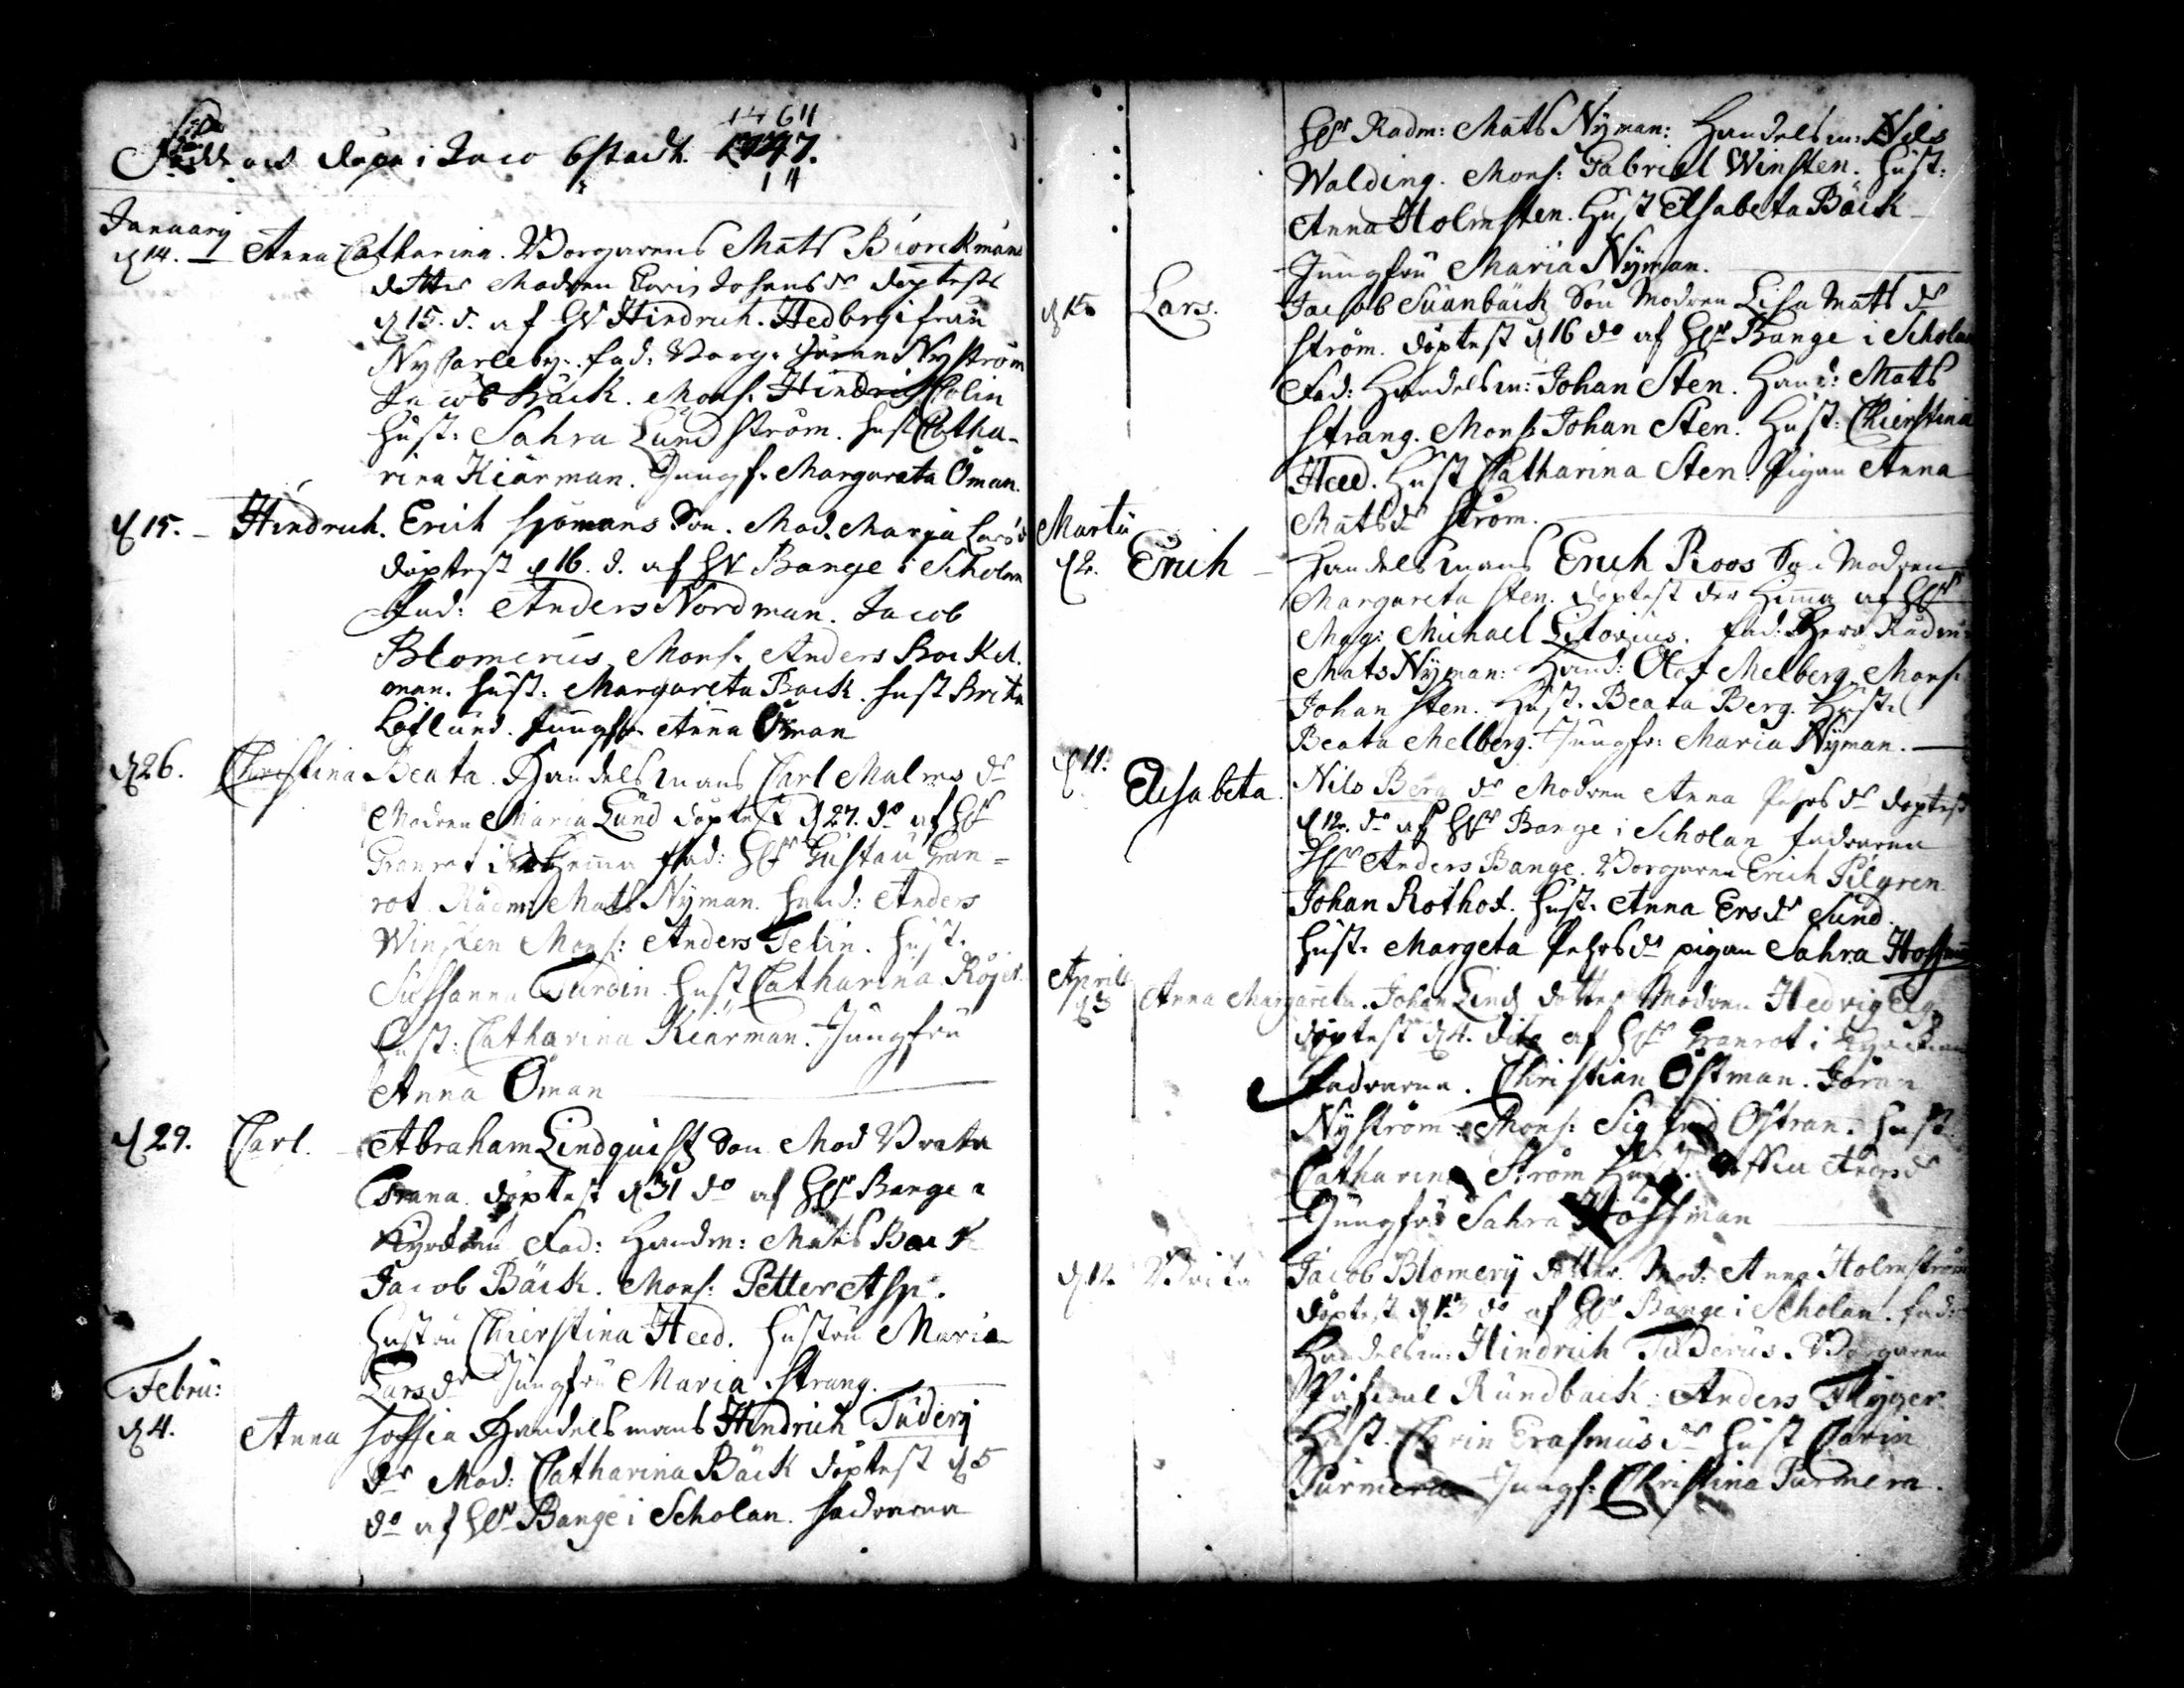 Född och döpt i Jaco bstadh. 1747.
January
d 14. 1 Anna Catharina. Borgarens Mats Biörckmans
dotter Modren Carin Johans dr döptes
d 15. d. af Hr Hindrich. Hedberg ifrån
Ny Carleby. fad: Borg. Jöran Nyström
Jacob Bäck. Mons. Hindrich Colin
Hust: Sahra Lundström. Hust Catha-
rina Kiärman. Jungf. Margareta Öman.
d 15. - Hindrich. Erich Sjömans Son. Mod. Marja Lars d
döptest d 16. d. af Hr Bange i Scholan
fad: Anders Nordman. Jacob
Blomerus Mons. Anders Backel.
man. Hust. Margareta Back. Hust Brita
Löflund. Jungfr. Anna Öman
d 26. Christina Beata. Handelsmans Carl Malms dr
Modren Maria Lund döptest d 27. do af Hr
Granrot i Hemma fad: Hr Gustau Gran-
rot Rådm: Mats Nyman. Hand: Anders
Winsten Mons: Anders Telin. Hust.
Sussanna Turdin. Hust Catharina Röjer.
Hust: Catharina Kiärman. Jungfru
Anna Öman
d 29. Carl. Abraham Lindquist Son Mod Brita
Grana. döptest d 31 do af Hr Bange i
Kyrckan Fad: Handm: Mats Back
Jacob Bäck. Mons: Petter Asp.
Hustru Chierstina Heed. Hustru Maria
Larsdr Jungfru Maria Strang.
Febru:
d 4. Anna Soffia Handelsmans Hindrich Tudery
dr Mod: Catharina Bäck döptest d 5
do af Hr Bange i Scholan. fadrarna
Hr Radm: Mats Nyman: Handelsm: Nils
Walding. Mons: Gabriel Winsten. Hust:
Anna Holmsten. Hust Elsabeta Bäck
Jungfru Maria Nyman.
d 15 Lars. Jacob Suanbäck Son Modren Lisa Mats dr
Ström. döptest d 16 do af Hr Bange i Scholan
Fad: Handelsm: Johan Sten. Hand: Mats
Strang. Mons: Johan Sten. Hust: Chierstina
Heed. Hust Catharina Sten. Pigan Anna
Matsdr Ström.
Martii
d 2. Erich - Handelsmans Erich Roos So: Modren
Margareta Sten. döptest der Hemma af Hr
Mag: Michael Litovius. fad: Herr Rådm:
Mats Nyman: Hand: Olof Melberg. Mons.
Johan Sten. Hust. Beata Berg. Hust.
Beata Melberg. Jungfr: Maria Nyman.
d 11. Elisabeta. Nils Berg dr Modren Anna Pehrs dr döptest
d 12. do af Hr Bange i Scholan fadrarna
Hr Anders Bange. Borgaren Erich Pilgren
Johan Rothof. Hust. Anna Ersdr Sund.
Hust. Margeta Pehrsdr pigan Sahra Hoffman
Aprill
d 3 Anna Margareta. Johan Lind dotter Modren Hedvig Elg
döptest d 4. dito af Hr Granrot i Kyrckian
Fadrarna. Christian Östman. Jöran
Nyström. Mons: Sigfrid Östman. Hust.
Catharina Ström Hust. Soffia Andersdr
Jungfru Sahra Hoffman
d 12 Brita Jacob Blomery dotter. Mod: Anna Holmström
döptest d 13 do af Hr Bange i Scholan. fad:
Handelsm: Hindrich Tuderus. Borgaren
Rundback. Anders Flyger
Hust. Carin Erasmus dr Hust Carin
Purmera Jungf: Christina Purmera.